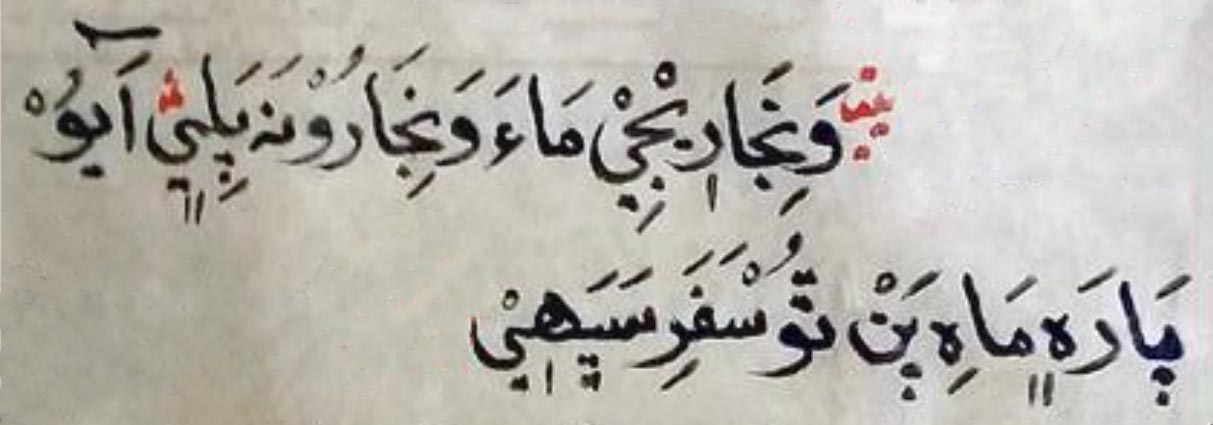 وَنِجَارِ يْجِيْ مَاءَ وَنِجَارُوْنَه پَلِيْ آيُوْ
پَارَه مَاهِ پَنْ تُوْ سَفَرِ سَيَهِيْ